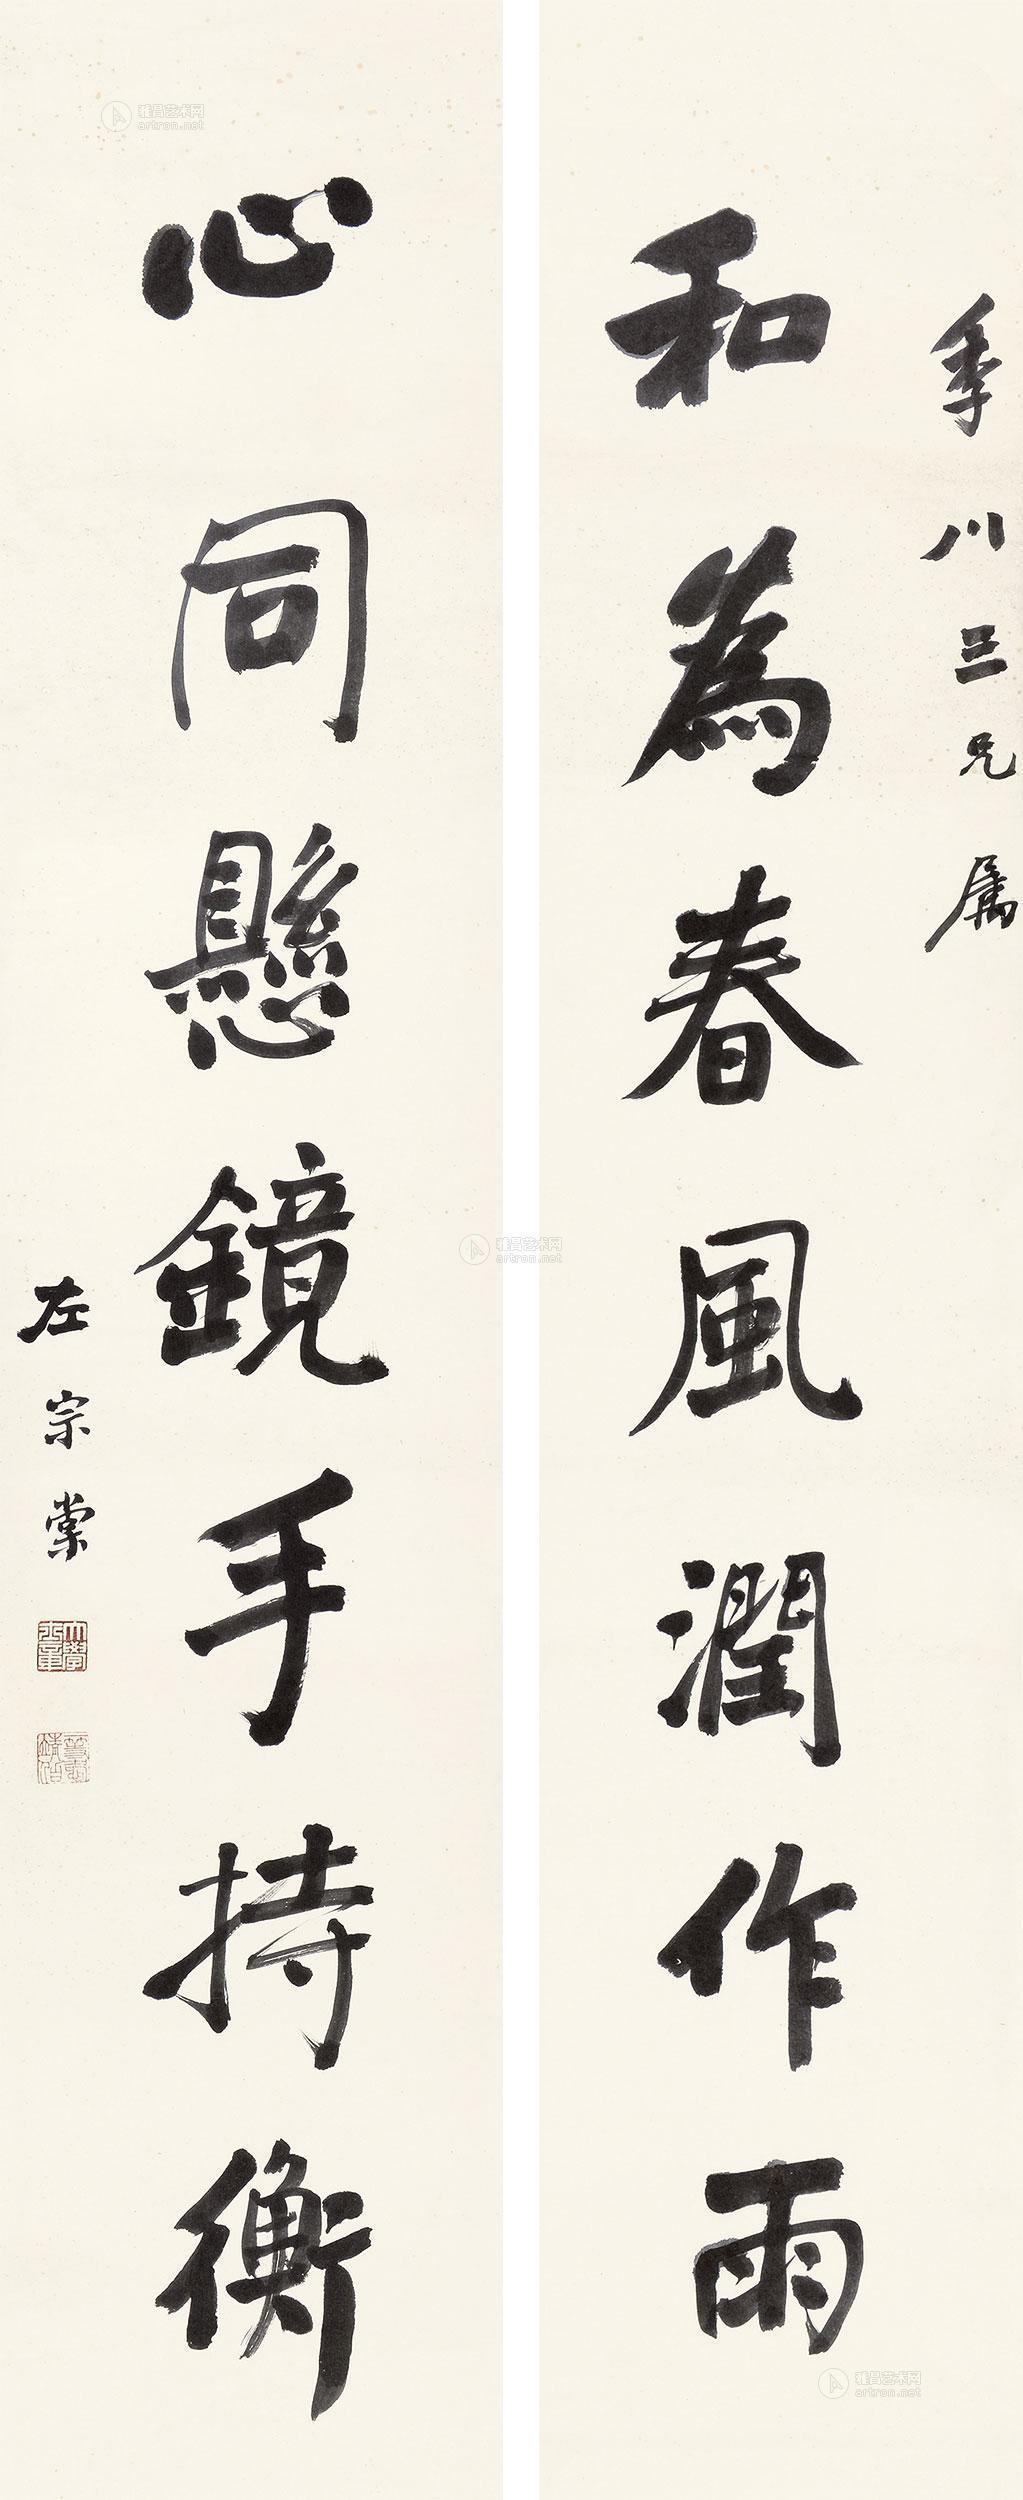 季川三兄属
和為春風潤作雨
心同懸鏡手持衡
左宗棠
雅昌艺术网
artron.net
雅昌艺术网
artron.net
雅昌艺术网
artron.net